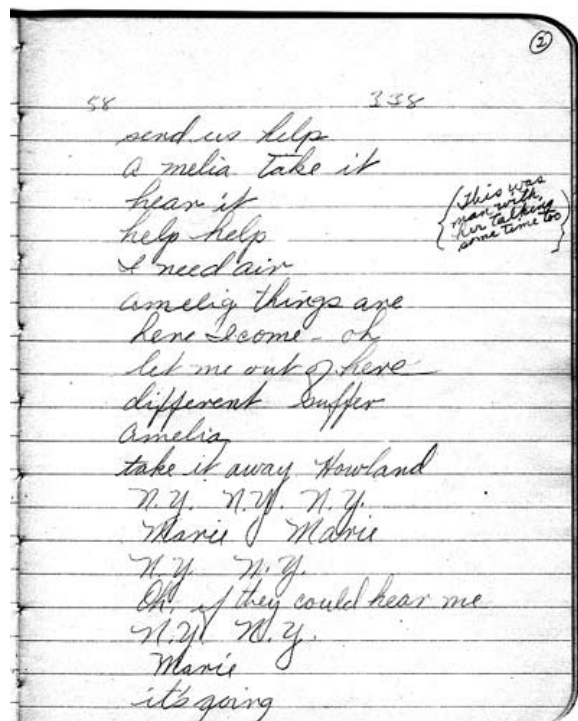 ②
58 338
send us help
a melia take it
hear it
help help
I need air
amelia things are
here I come - oh
let me out of here
different suffer
amelia
take it away Howland
N.Y. N.Y. N.Y.
Marie Marie
N.Y. N.Y.
Oh, if they could hear me
N.Y. N.Y.
Marie
it's going
{This was
man with
her talking
some time too}